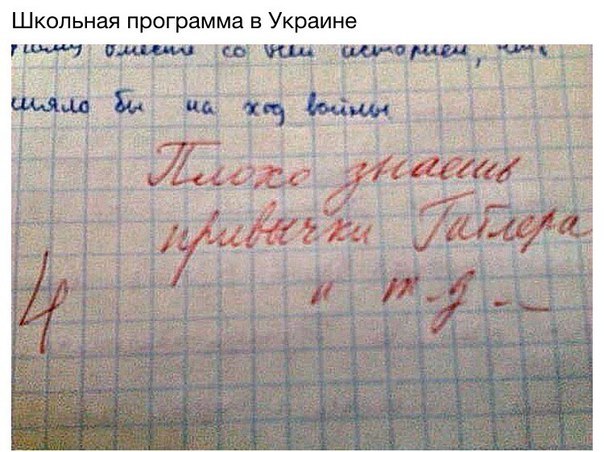 Школьная программа в Украине
вместе со всей историей,
бы на ход войны
Плохо знаешь
привычки Гитлера
4 и т.д. -